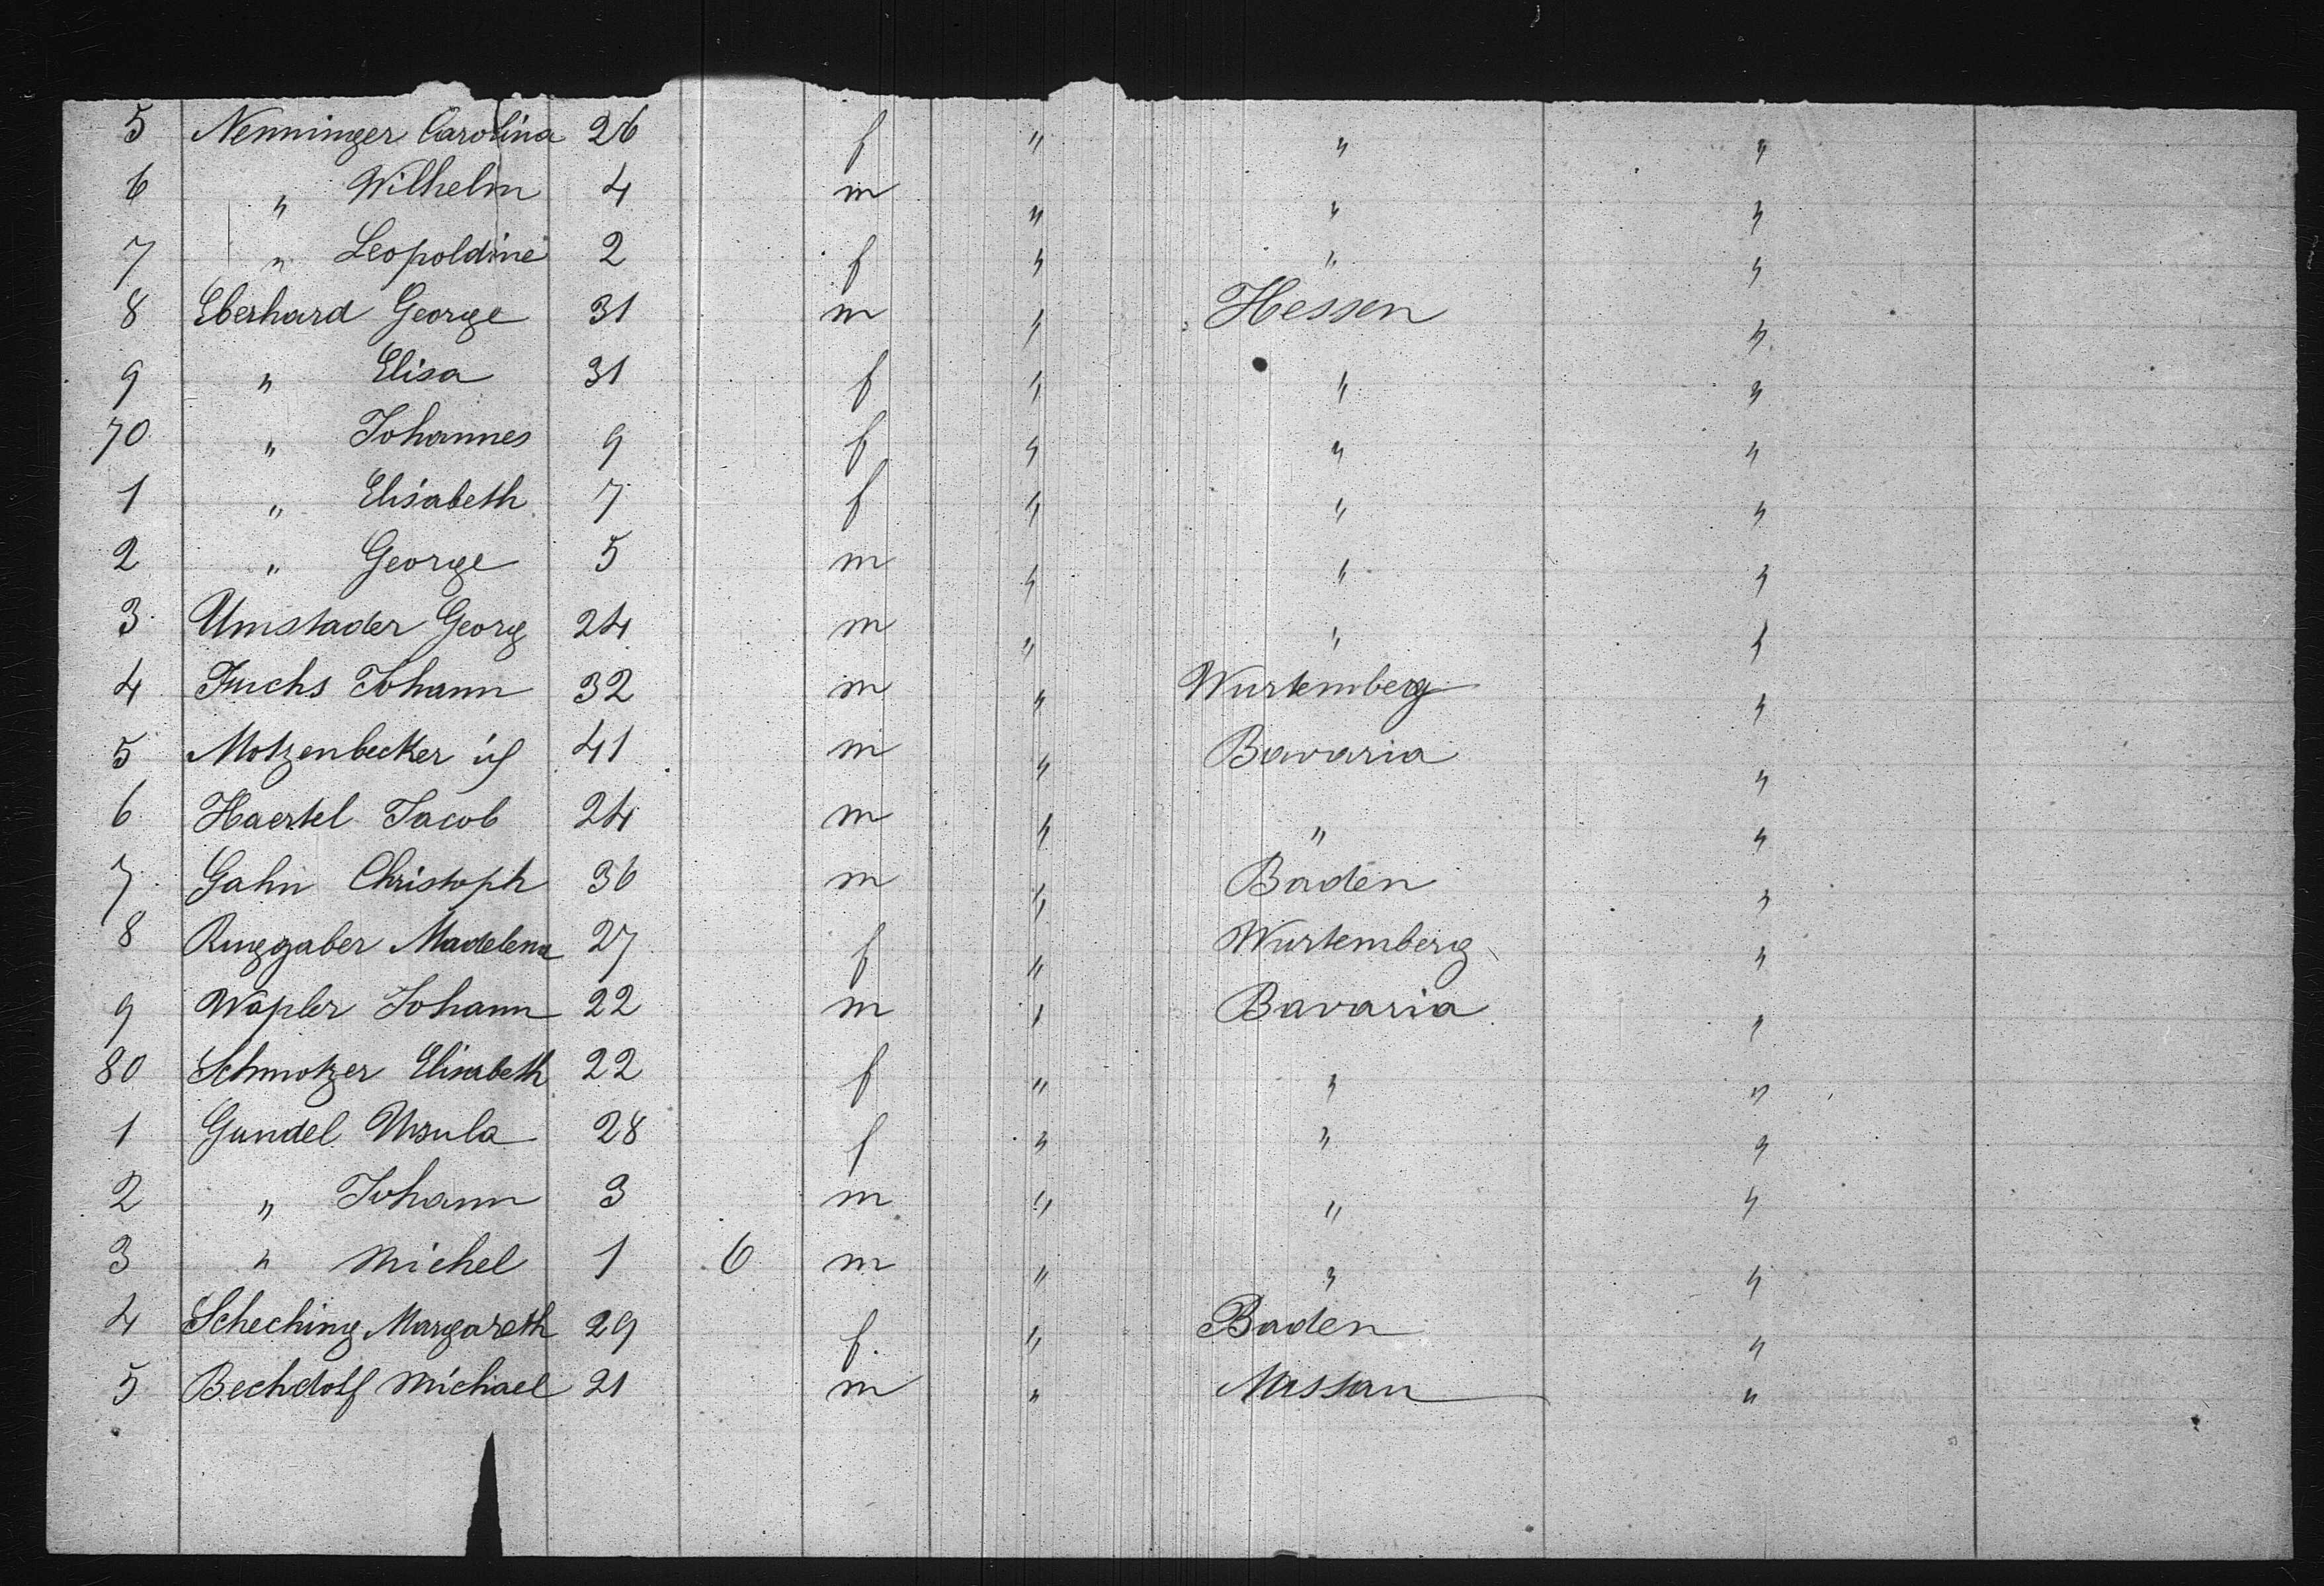 5 Nenninger Carolina 26 f " " "
6 " Wilhelm 4 m " " "
7 " Leopoldine 2 f " " "
8 Eberhard George 31 m " Hessen "
9 " Elisa 31 f " " "
70 " Johannes 9 f " " "
1 " Elisabeth 7 f " " "
2 " George 5 m " " "
3 Umstader Georg 24 m " " "
4 Fuchs Johann 32 m " Wurtemberg "
5 Motzenbecker 41 m " Bavaria "
6 Haertel Jacob 24 m " " "
7 Gahn Christoph 36 m " Baden "
8 Ringgaber Madelena 27 f " Wurtemberg "
9 Wapler Johann 22 m " Bavaria "
80 Schmotzer Elisabeth 22 f " " "
1 Gundel Ursula 28 f " " "
2 " Johann 3 m " " "
3 " Michel 1 6 m " " "
4 Scheching Margareth 29 f " Baden "
5 Bechdolf Michael 21 m " Nassau "